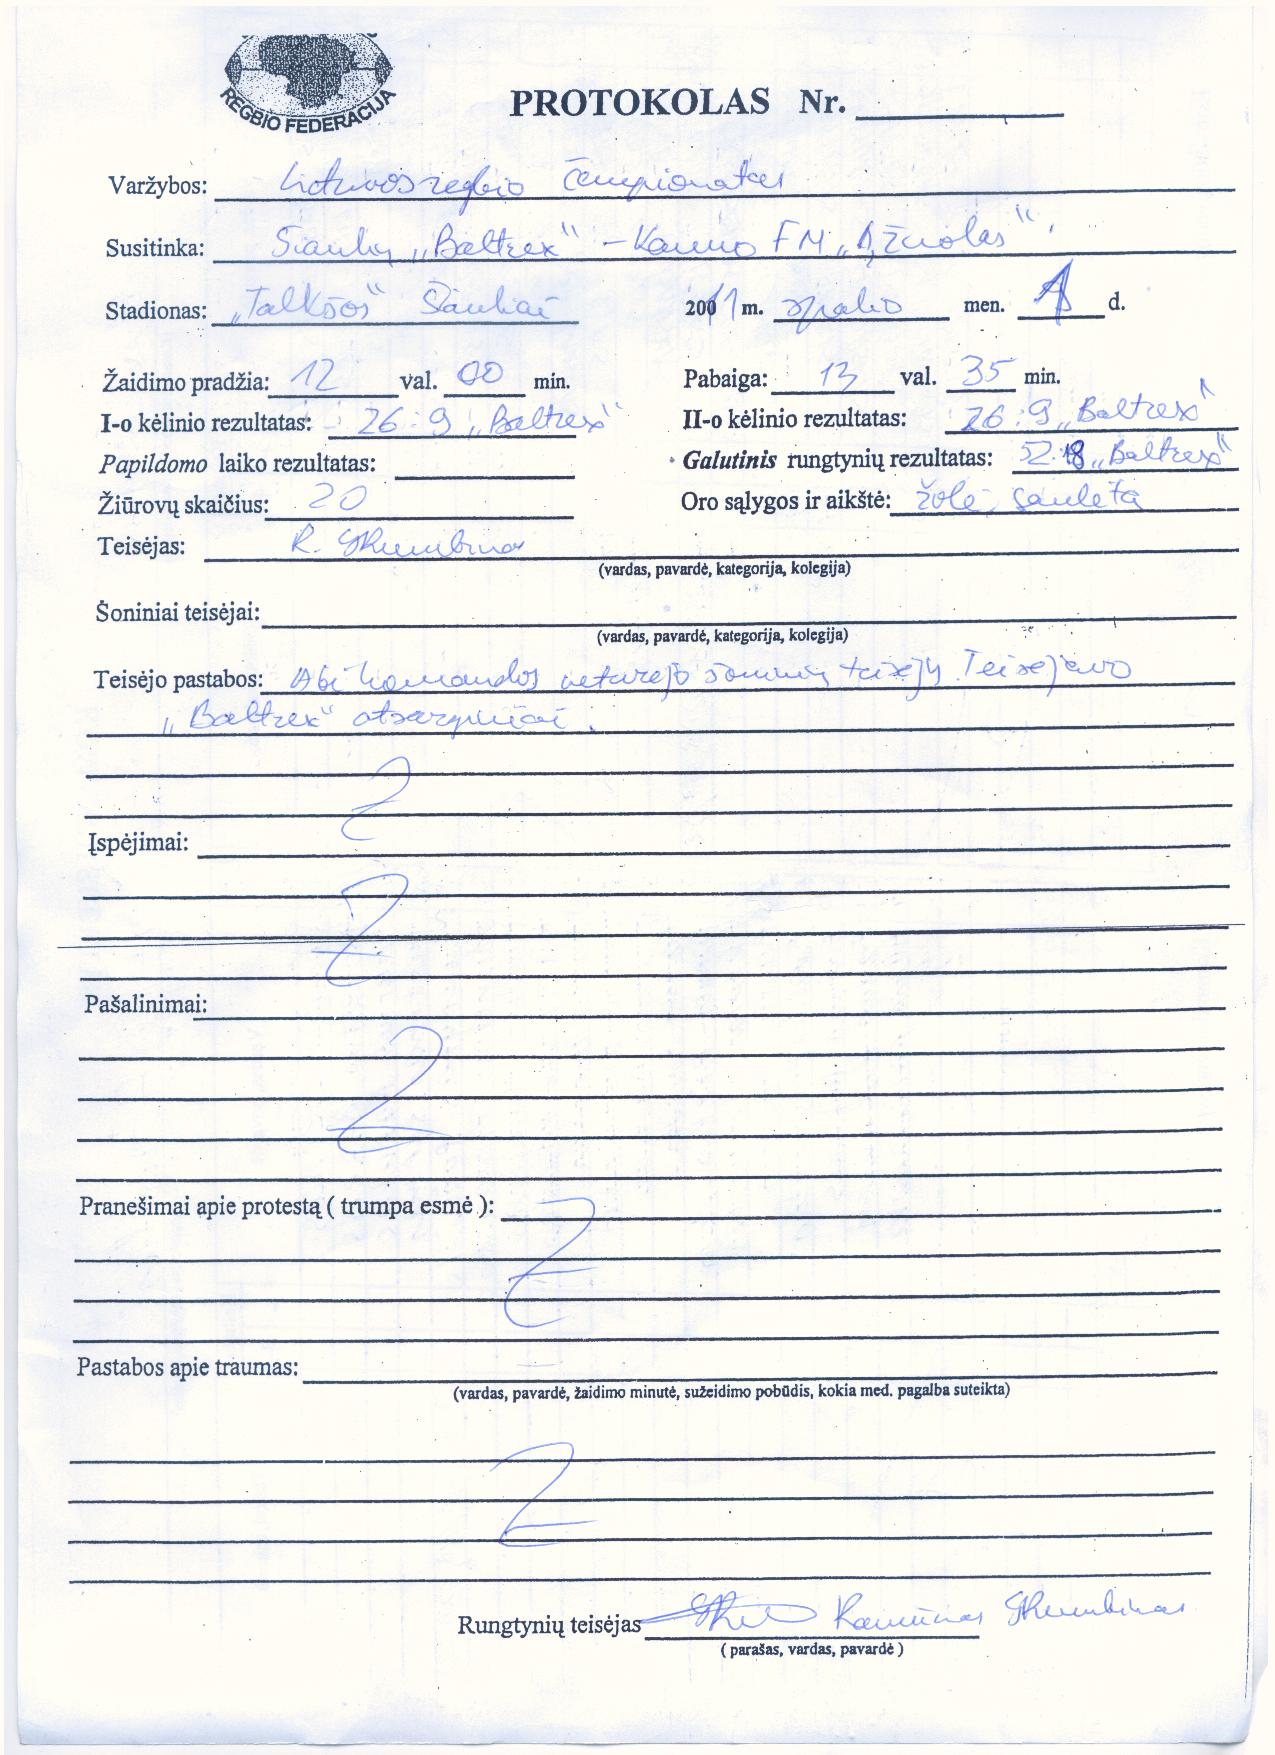 REGBIO FEDERACIJA
PROTOKOLAS Nr.
Varžybos: Lietuvos regbio čempionatas
Susitinka: Šiaulių „Baltrex“ – Kauno FM „Ąžuolas“
Stadionas: „Talkšos“ Šiauliai 2011 m. spalio men. d.
Žaidimo pradžia: 12 val. 00 min. Pabaiga: 13 val. 35 min.
I-o kėlinio rezultatas: 26:9 „Baltrex“ II-o kėlinio rezultatas: 26:9 „Baltrex“
Papildomo laiko rezultatas: Galutinis rungtynių rezultatas: 52:18 „Baltrex“
Žiūrovų skaičius: 20 Oro sąlygos ir aikštė: žolė, saulėta
Teisėjas: R. Skumbinas
(vardas, pavardė, kategorija, kolegija)
Šoniniai teisėjai:
(vardas, pavardė, kategorija, kolegija)
Teisėjo pastabos: Abi komandos neturėjo šoninių teisėjų. Teisėjavo
„Baltrex“ atsarginiai.
Įspėjimai:
Pašalinimai:
Pranešimai apie protestą ( trumpa esmė ):
Pastabos apie traumas:
(vardas, pavardė, žaidimo minutė, sužeidimo pobūdis, kokia med. pagalba suteikta)
Rungtynių teisėjas Ramūnas Skumbinas
( parašas, vardas, pavardė )